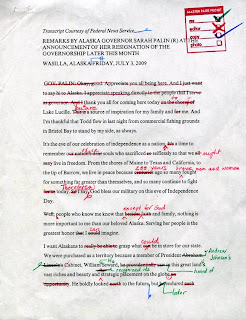 Transcript Courtesy of Federal News Service
REMARKS BY ALASKA GOVERNOR SARAH PALIN (R) AT
ANNOUNCEMENT OF HER RESIGNATION OF THE
GOVERNORSHIP LATER THIS MONTH
WASILLA, ALASKA FRIDAY, JULY 3, 2009
GOV. PALIN: Okay, good. Appreciate you all being here. And I just want
to say hi to Alaska. I appreciate speaking directly to the people that I serve
as governor. And I thank you all for coming here today on the shores of
Lake Lucille. This is a source of inspiration for my family and for me. And
I'm thankful that Todd flew in last night from commercial fishing grounds
in Bristol Bay to stand by my side, as always.
It's the eve of our celebration of independence as a nation. It's a time to
remember our soldiers who sacrificed so that we
live in freedom. From the shores of Maine to Texas and California, to
the Up of Barrow, we live in peace because ago so many fought
235 years brave men and women
for something far greater than themselves, and so many continue to fight
Therefore
today. God bless our military on this eve of Independence
Day.
except for God
people who know me know that besides faith and family, nothing is
more important to me than our beloved Alaska. Serving her people is the
greatest honor that I could imagine.
could
I want Alaskans to grasp what can be in store for our state.
We were purchased as a territory because a member of President Abraham
Andrew Johnson's
Lincoln's Cabinet, William Seward, this great land's
recognized its
vast riches and beauty and strategic placement on the globe
opportunity. He boldly looked to the future, but he endured such
later